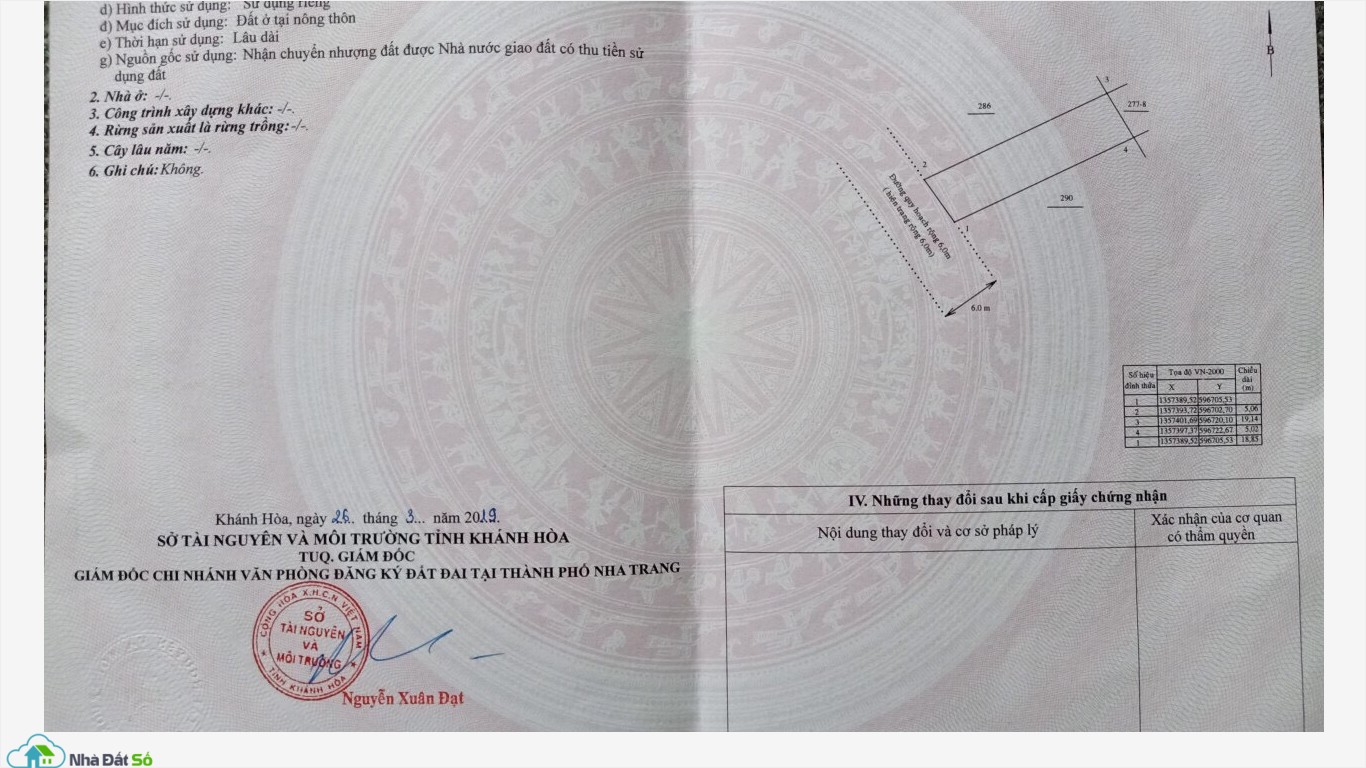 d) Hình thức sử dụng: Sử dụng riêng
đ) Mục đích sử dụng: Đất ở tại nông thôn
e) Thời hạn sử dụng: Lâu dài
g) Nguồn gốc sử dụng: Nhận chuyển nhượng đất được Nhà nước giao đất có thu tiền sử
dụng đất
2. Nhà ở: -/-.
3. Công trình xây dựng khác: -/-.
4. Rừng sản xuất là rừng trồng: -/-.
5. Cây lâu năm: -/-.
6. Ghi chú: Không.
Khánh Hòa, ngày 26 tháng 3 năm 2019.
SỞ TÀI NGUYÊN VÀ MÔI TRƯỜNG TỈNH KHÁNH HÒA
TUQ. GIÁM ĐỐC
GIÁM ĐỐC CHI NHÁNH VĂN PHÒNG ĐĂNG KÝ ĐẤT ĐAI TẠI THÀNH PHỐ NHA TRANG
CỘNG HÒA X.H.C.N VIỆT NAM
SỞ
TÀI NGUYÊN
VÀ
MÔI TRƯỜNG
TỈNH KHÁNH HÒA
Nguyễn Xuân Đạt
B
286
3
277-8
2
4
290
1
Đường quy hoạch rộng 6,0m
( hiện trạng rộng 6,0m)
6.0 m
Số hiệu đỉnh thửa Tọa độ VN-2000 Chiều dài (m)
X Y
1 1357389,52 596705,53
2 1357393,72 596702,70 5,06
3 1357401,69 596720,10 19,14
4 1357397,37 596722,67 5,02
1 1357389,52 596705,53 18,85
IV. Những thay đổi sau khi cấp giấy chứng nhận
Nội dung thay đổi và cơ sở pháp lý
Xác nhận của cơ quan
có thẩm quyền
Nhà Đất Số